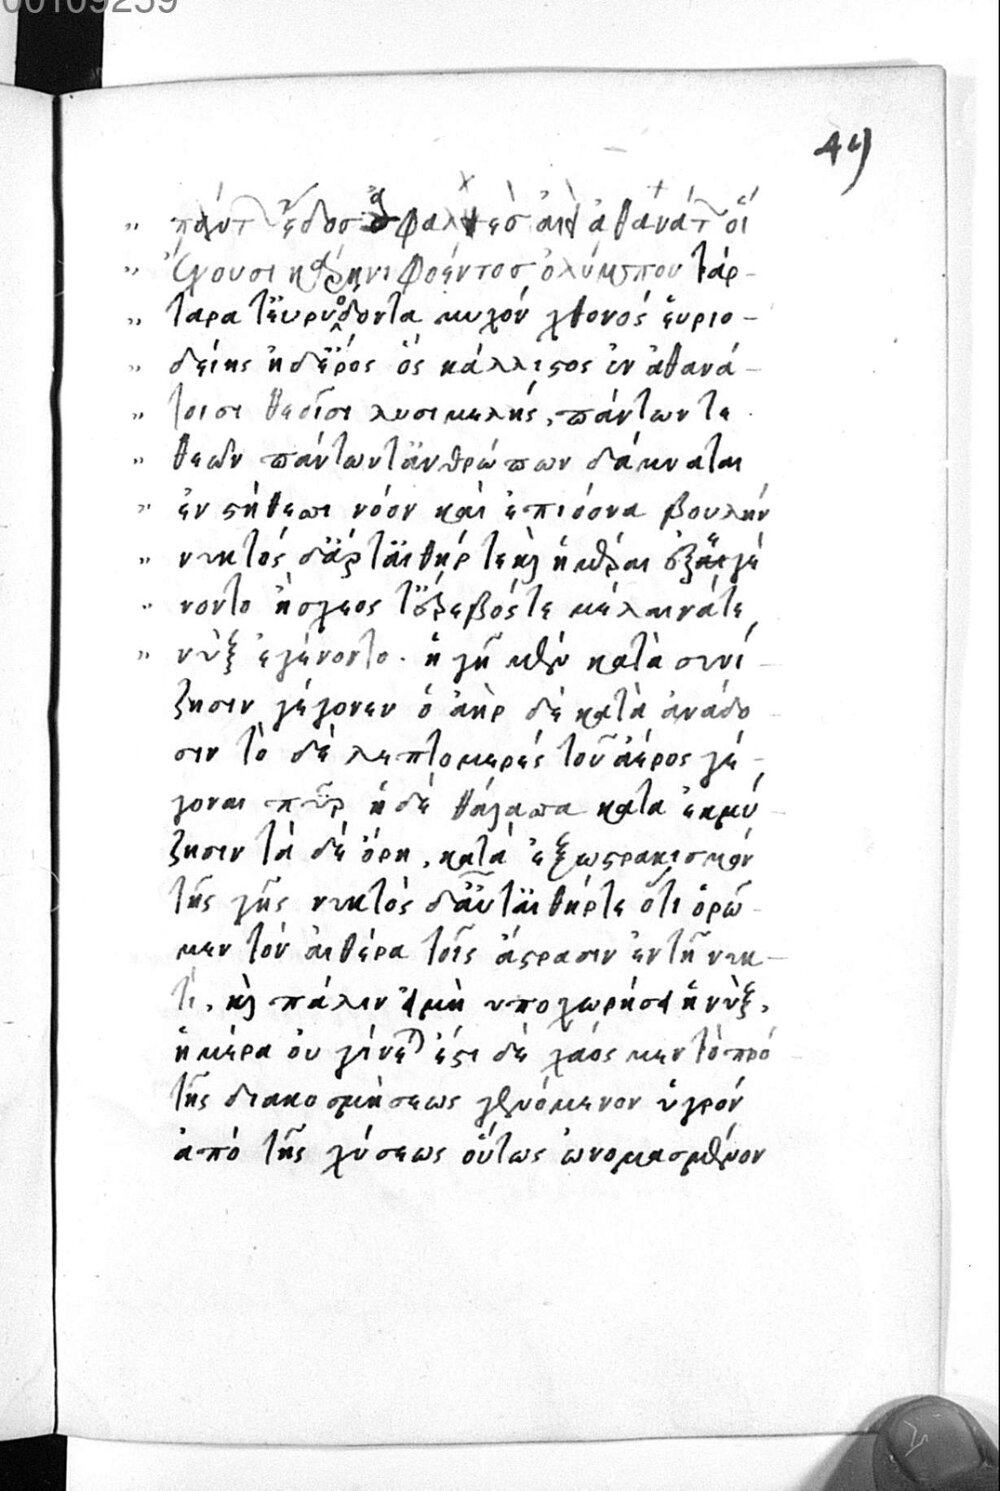 00109259
49
„ πάντ ἕδος ἀσφαλὲς αἰεὶ ἀθανάτ οἳ
„ ἔχουσι κάρηνιφόεντος ὀλύμπου τάρ-
„ ταρα τ'ευρυόδοντα μυχόν χθονός ἐυριο-
„ δείης ἠδἔρος ὅς κάλλιστος ἐν ἀθανά-
„ τοισι θεοῖσι λυσιμελής, πάντων τε
„ θεῶν πάντων τ'ἀνθρώπων δάμναται
„ ἐν στήθεσσι νόον καὶ ἐπίφρονα βουλήν
„ νυκτός δ'ἄρ τ'αἰθήρ τε κ ἡμέραι ἐξεγέ
„ νοντο ἠ χάεος τ'ἔρεβός τε μέλαινά τε
„ νὺξ ἐγένοντο. ἡ γῆ μὲν κατὰ συνί-
ζησιν γέγονεν ὁ ἀὴρ δὲ κατὰ ἀνάδο-
σιν τὸ δὲ λεπτομερές τοῦ ἀέρος γέ-
γονε πῦρ ἡ δὲ θάλασσα κατα ἐκμύ-
ζησιν τὰ δὲ ὄρη, κατὰ ἐξωστρακισμὸν
τῆς γῆς νυκτὸς δ'αὖτ'αἰθήρτε ὅτι ὁρῶ-
μεν τόν αἰθέρα τοῖς ἄστρασιν ἐν τῆ νυκ-
τί, κ πάλιν εἰ μὴ υποχωρήσει ἡ νὺξ,
ἡμέρα ὀυ γίνεται ἔστι δὲ χάος μεν τὸ πρό
τῆς διακοσμήσεως γενόμενον ὑγρόν
ἀπό τῆς χύσεως οὕτως ὠνομασμένον